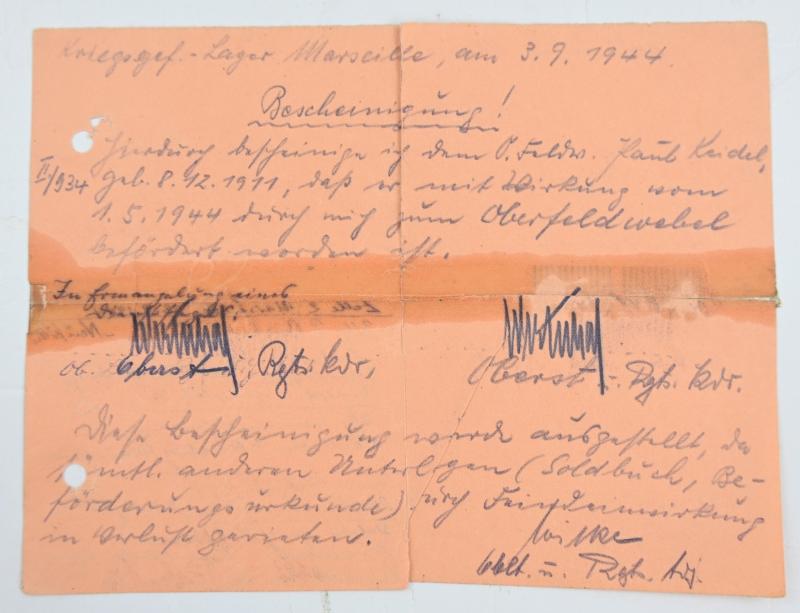 Kriegsgef.-Lager Marseille, am 3.9.1944.
Bescheinigung!
Hierdurch bescheinige ich dem O.Feldw. Paul Keidel,
II/934 geb. 8.12.1911, daß er mit Wirkung vom
1.5.1944 durch mich zum Oberfeldwebel
befördert worden ist.
In Ermangelung eines
Oberst u. Rgts. Kdr.
Oberst u. Rgts. Kdr.
Diese Bescheinigung wurde ausgestellt, da
sämtl. anderen Unterlagen (Soldbuch, Be-
förderungsurkunde) durch Feindeinwirkung
in Verlust gerieten.
Wilke
Oblt. u. Rgts. Adj.